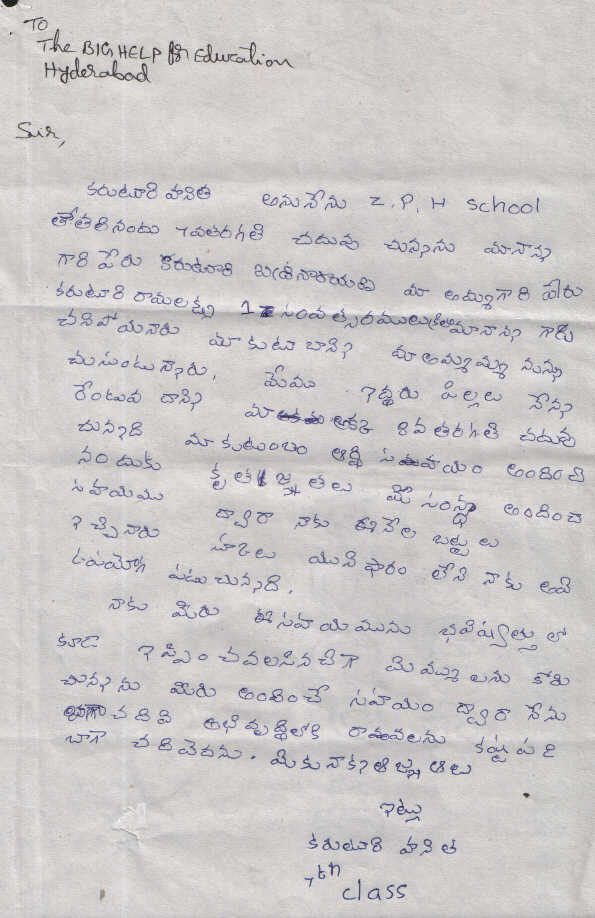 TO
The BIG HELP for Education
Hyderabad
Sir,
కరుటూరి వానిత అను నేను Z.P.H school
తోతరి నందు 7వతరగతి చదువు చున్నను మానాన్న
గారి పేరు కరుటూరి మా అమ్మగారి పేరు
కరుటూరి రామలక్ష్మి 1 సంవత్సరములు క్రితం మానాన్న గారు
చనిపోయినారు మా కుటూంబాన్ని మా అమ్మమ్మ నున్ను
చుసుంటున్నారు. మేము ఇద్దరు పిల్లలు నేన్న
రేండువ దాన్ని మా అక్క 8వ తరగతి చదువు
చున్నది మా కుటుంబం ఆర్ధి సహాయం అందించి
నందుకు కృతజ్ఞతలు మీ సంస్థ అందించ
సహాయము ద్వారా నాకు ఈ నేల బట్టలు
ఇచ్చేనారు యునిఫారం లేని నాకు అవి
ఉపయోగ పడుచున్నది.
నాకు మీరు ఈ సహాయమును భవిష్యత్తు లో
కూడా ఇప్పించవలసినదిగా మిమ్ము లను కోరు
చున్నను మీరు అందించే సహాయం ద్వారా నేను
బాగా చదివి అభివృద్ధిలోకి రావలను కష్టపడి
బాగా చదివెదను. మీకు నా కృతజ్ఞతలు
ఇట్లు
కరుటూరి వానిత
7th class